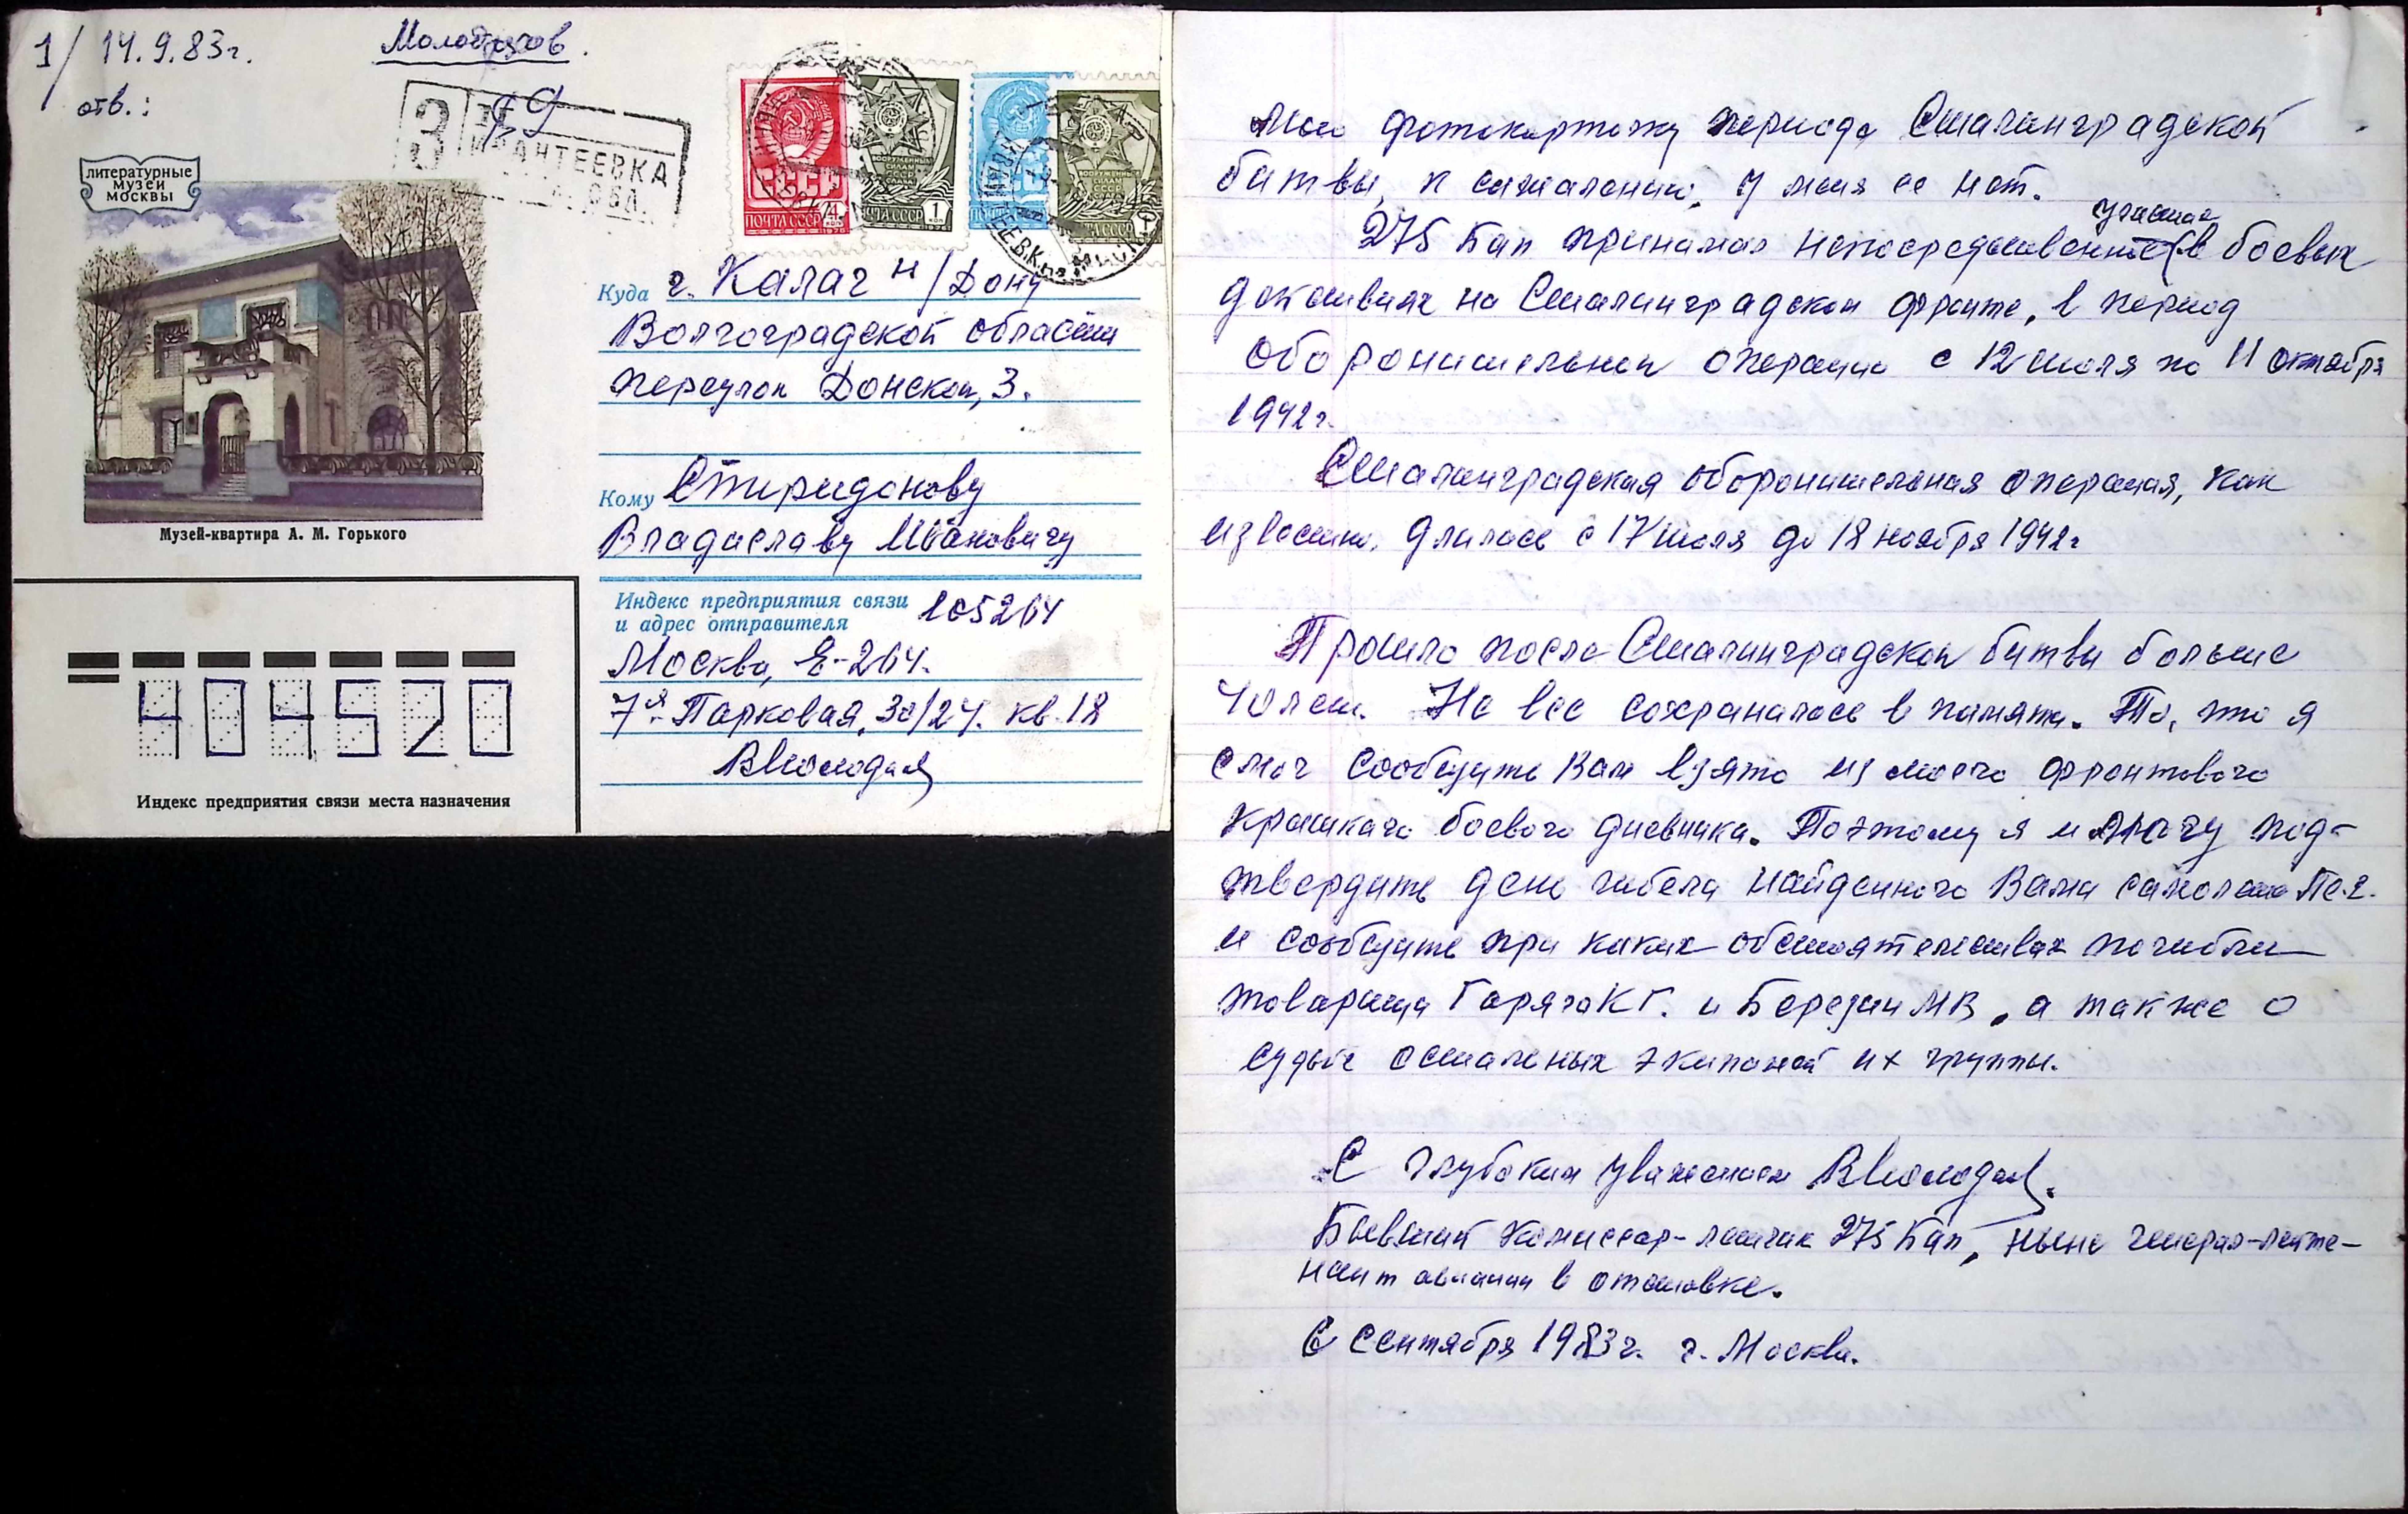 1/ 14.9.83г.
отв.:
З
ИВАНТЕЕВКА
литературные
музеи
москвы
Музей-квартира А. М. Горького
ПОЧТА СССР
1
Куда г. Калач н/Дону
Волгоградской области
переулок Донской, 3.
Кому Спиридонову
Владиславу Ивановичу
Индекс предприятия связи
и адрес отправителя 105264
Москва, Е-264.
7я Парковая, 30/24. кв. 18
404520
Индекс предприятия связи места назначения
Мою фотокарточку периода Сталинградской
битвы, к сожалению, у меня ее нет.
участие
275 бап принимал непосредственное в боевых
действиях на Сталинградском фронте, в период
оборонительной операции с 12 июля по 11 октября
1942г.
Сталинградская оборонительная операция, как
известно, длилась с 17 июля до 18 ноября 1942г
Прошло после Сталинградской битвы больше
40 лет. Не все сохранилось в памяти. То, что я
смог сообщить Вам взято из моего фронтового
краткого боевого дневника. Поэтому я и могу под-
твердить день гибели найденного Вами самолета Пе-2.
и сообщить при каких обстоятельствах погибли
товарищи Горяго К Г. и Березин МВ, а также о
судьбе остальных экипажей их группы.
С глубоким уважением
Бывший комиссар-летчик 275 бап, ныне генерал-лейте-
нант авиации в отставке.
6 сентября 1983г. г. Москва.